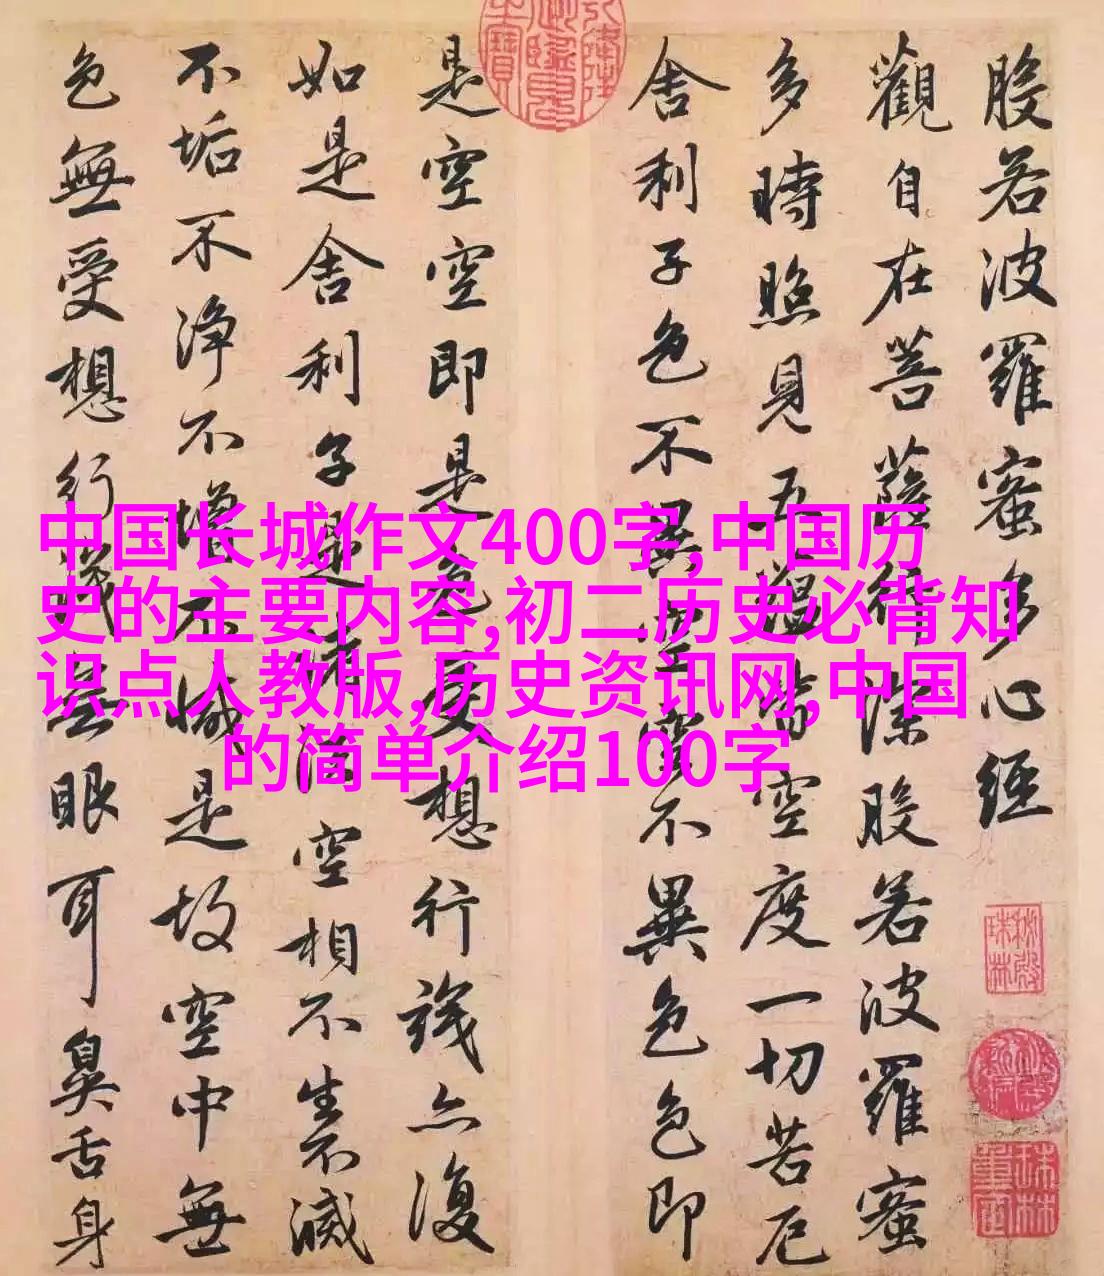 般若波羅蜜多心經
觀自在菩薩行深般若波羅蜜
多時照見五蘊皆空度一切苦厄
舍利子色不異空空不異色色即
是空空即是色受想行識亦復
如是舍利子是諸法空相不生不滅
不垢不淨不增不減是故空中無
色無受想行識無眼耳鼻舌身
中国长城作文400字,中国历
史的主要内容,初二历史必背知
识点人教版,历史资讯网,中国
的简单介绍100字
秘殿珠林